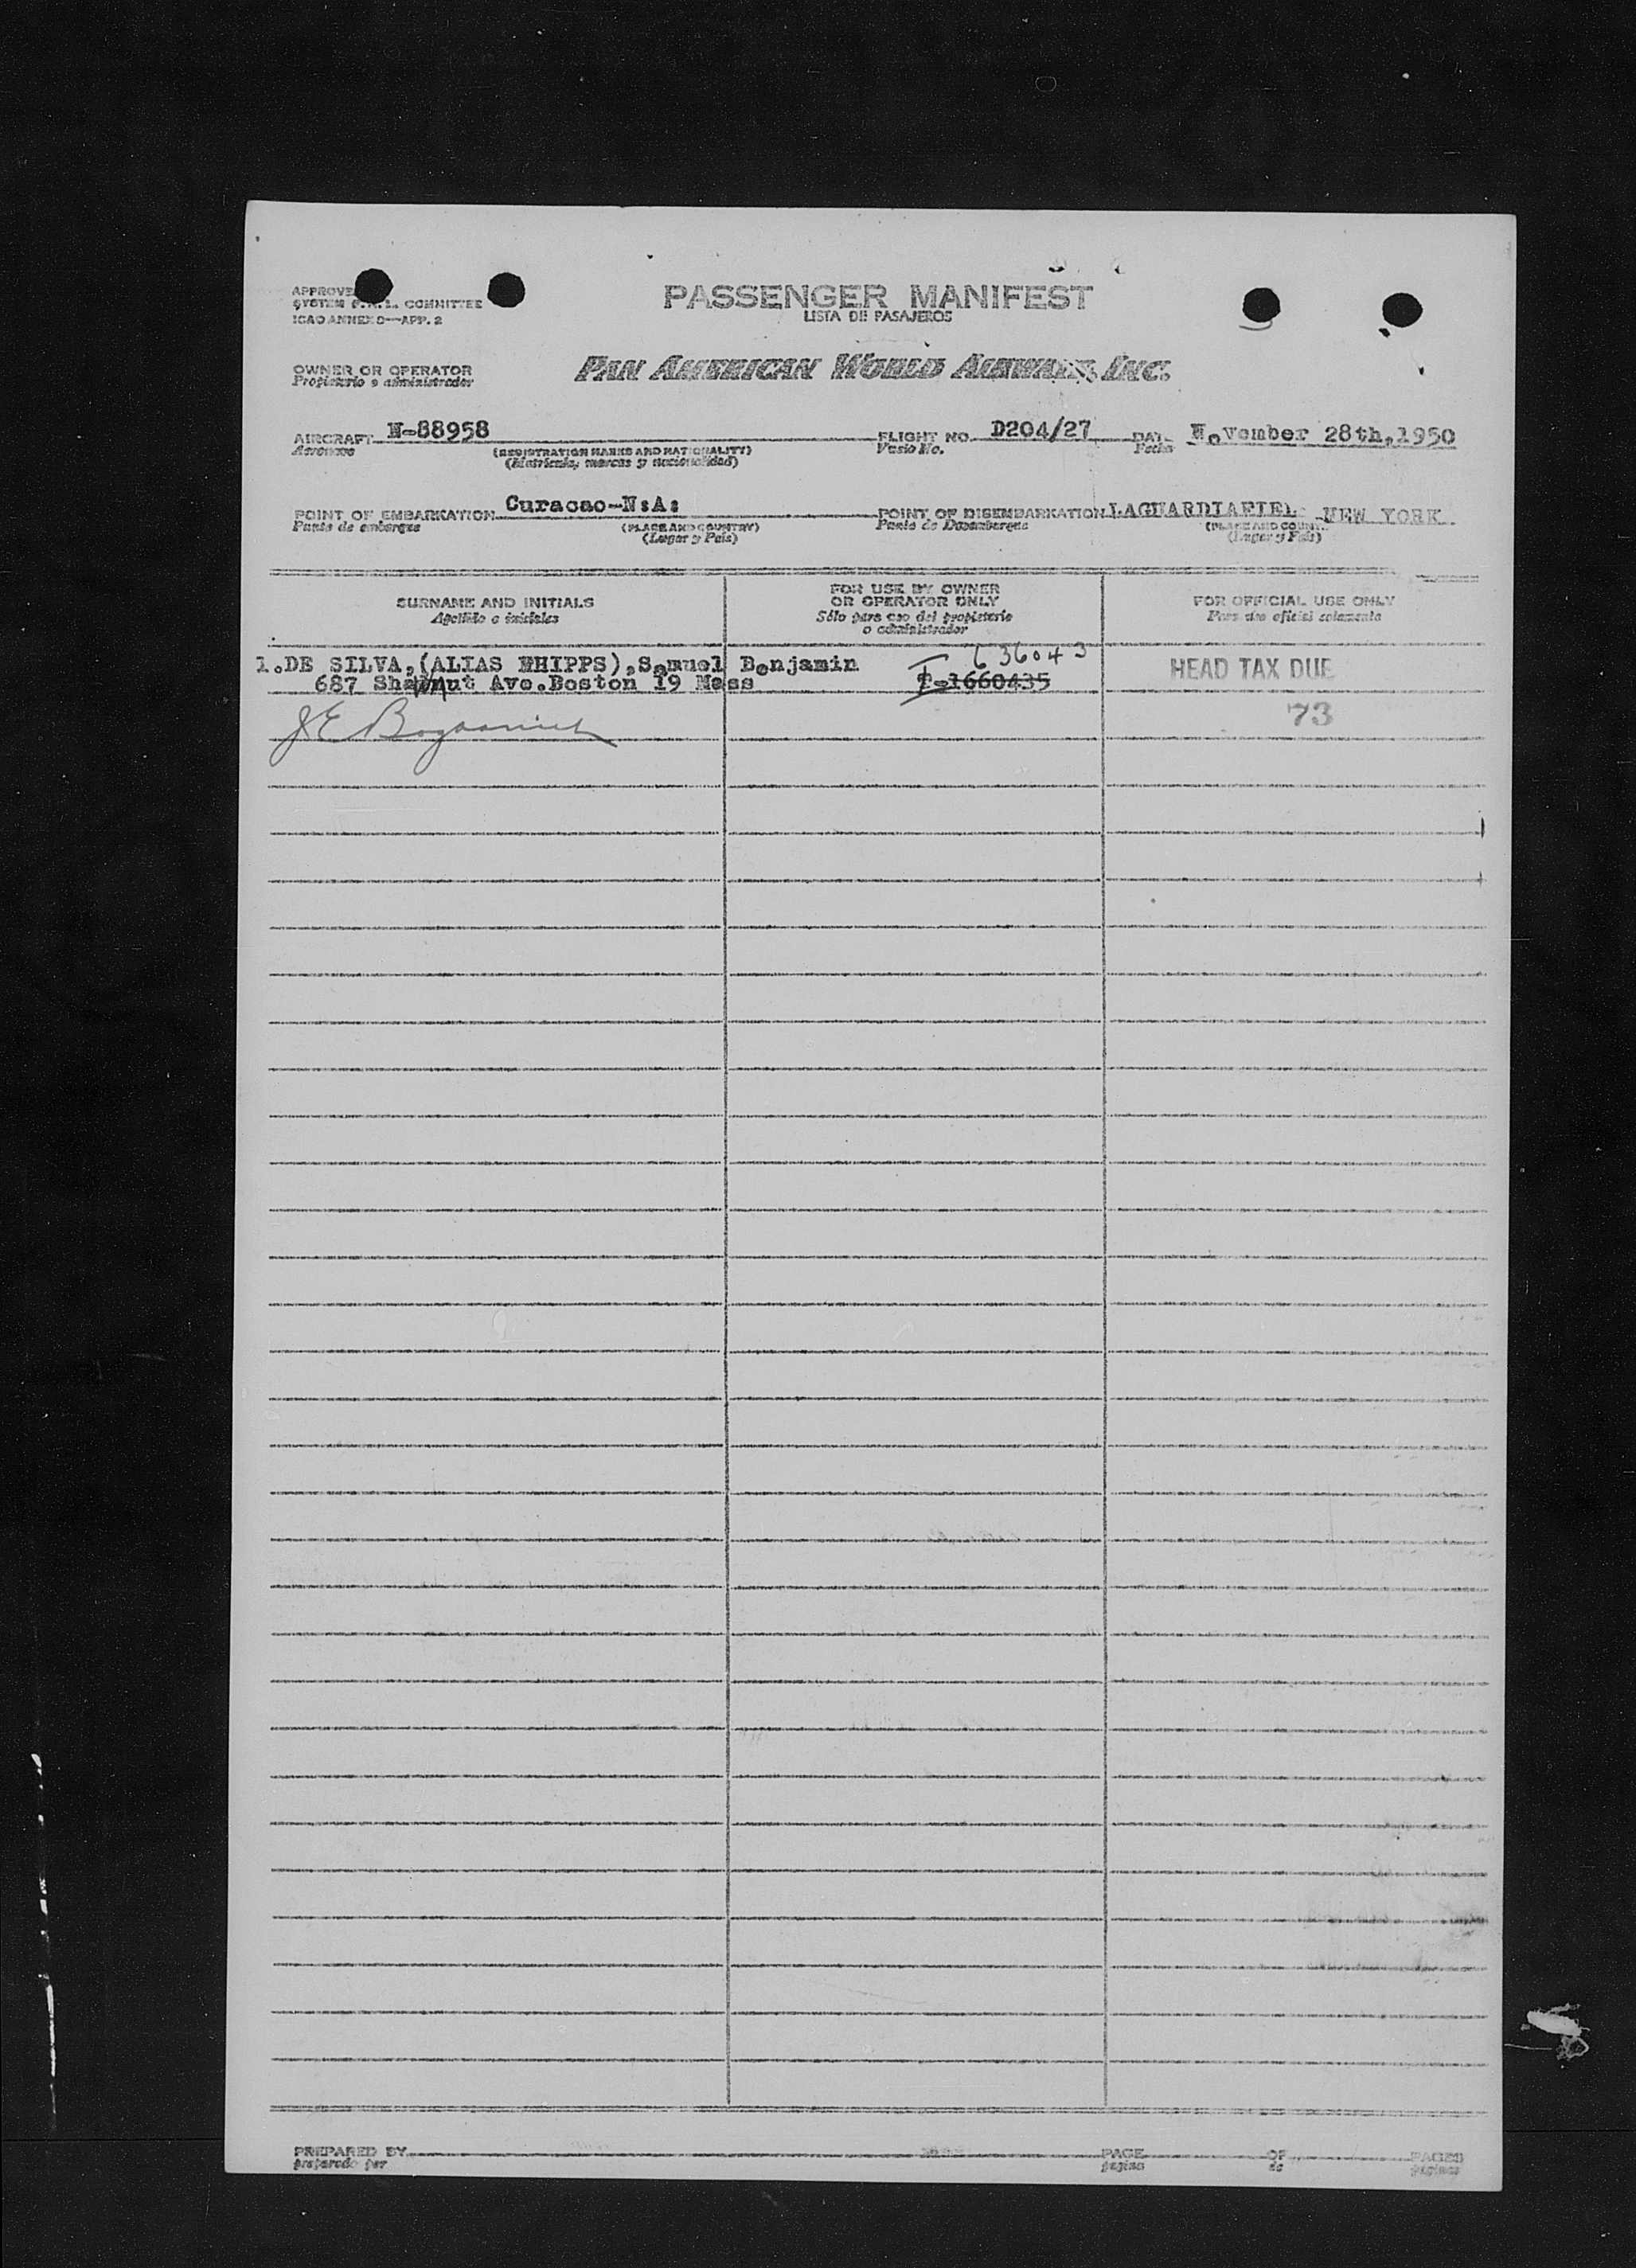 PASSENGER MANIFEST
LISTA DE PASAJEROS
SYSTEM COMMITTEE
ICAO ANNEX 9—APP. 2
OWNER OR OPERATOR
Propietario o administrador
PAN AMERICAN WORLD AIRWAYS, INC.
AIRCRAFT N-88958 FLIGHT NO. D204/27 DATE November 28th,1950
Aeronave (REGISTRATION MARKS AND NATIONALITY) Vuelo No. Fecha
(Matrícula, marcas y nacionalidad)
POINT OF EMBARKATION Curacao-N:A: POINT OF DISEMBARKATION LAGUARDIAFIEL NEW YORK
Punto de embarque (PLACE AND COUNTRY) Punto de Desembarque (PLACE AND COUNT
(Lugar y País) (Lugar y País)
SURNAME AND INITIALS
Apellido e iniciales
FOR USE BY OWNER
OR OPERATOR ONLY
Sólo para uso del propietario
o administrador
FOR OFFICIAL USE ONLY
Para uso oficial solamente
636043
1.DE SILVA,(ALIAS WHIPPS),Samuel Benjamin HEAD TAX DUE
687 Shawmut Ave.Boston 19 Mass I-1660435
73
PREPARED BY PAGE OF PAGES
preparado por página de páginas